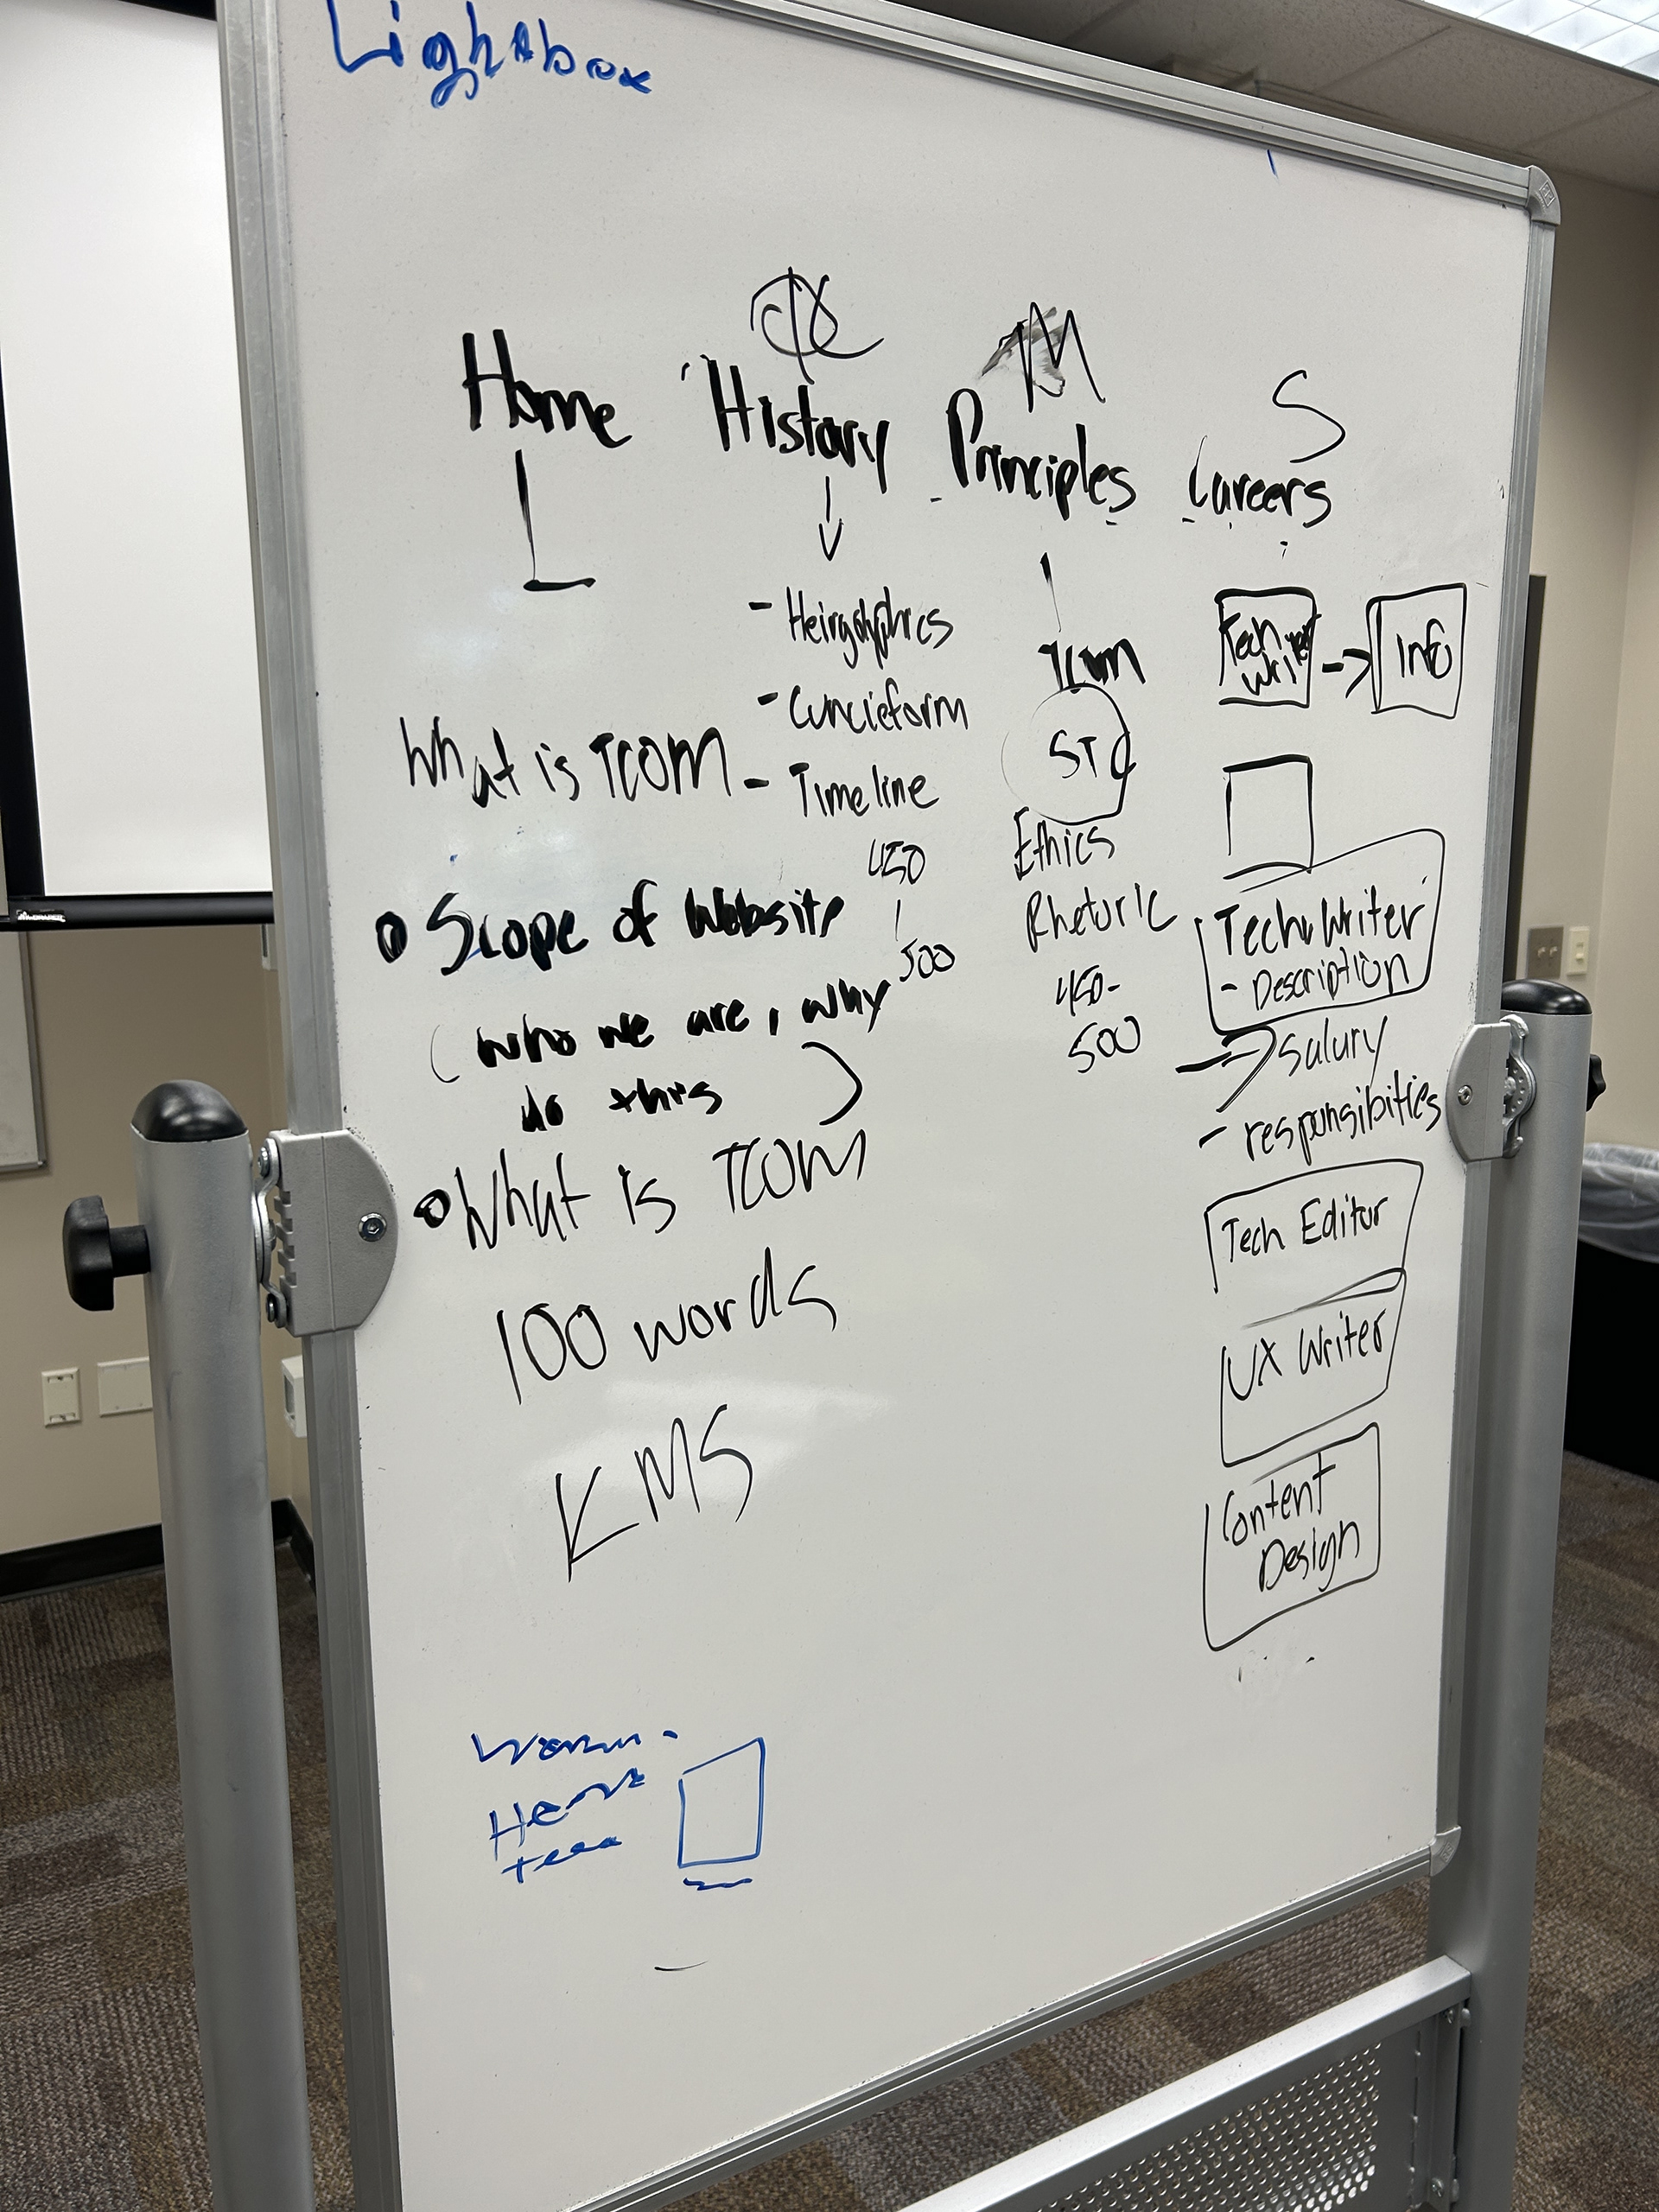 Lightbox
M
S
Home
History
Principles
Careers
L
What is TCOM
- Heirgolyphics
- Cuncieform
- Timeline
450
500
Tcom
STC
Ethics
Rhetoric
450-
500
Tech Writer
Info
Tech Writer
- Description
Salary
- responsibities
Tech Editor
UX Writer
Content
Design
Scope of Website
(who we are, why
do this)
What is TCOM
100 words
KMS